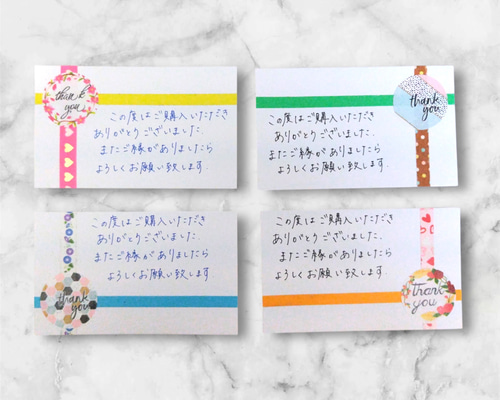 thank
you
この度はご購入いただき
ありがとうございました.
またご縁がありましたら
よろしくお願い致します.
thank
you
この度はご購入いただき
ありがとうございました.
またご縁がありましたら
よろしくお願い致します.
この度はご購入いただき
ありがとうございました.
またご縁がありましたら
よろしくお願い致します
thank
you
この度はご購入いただき
ありがとうございました.
またご縁がありましたら
よろしくお願い致します.
Thank
you